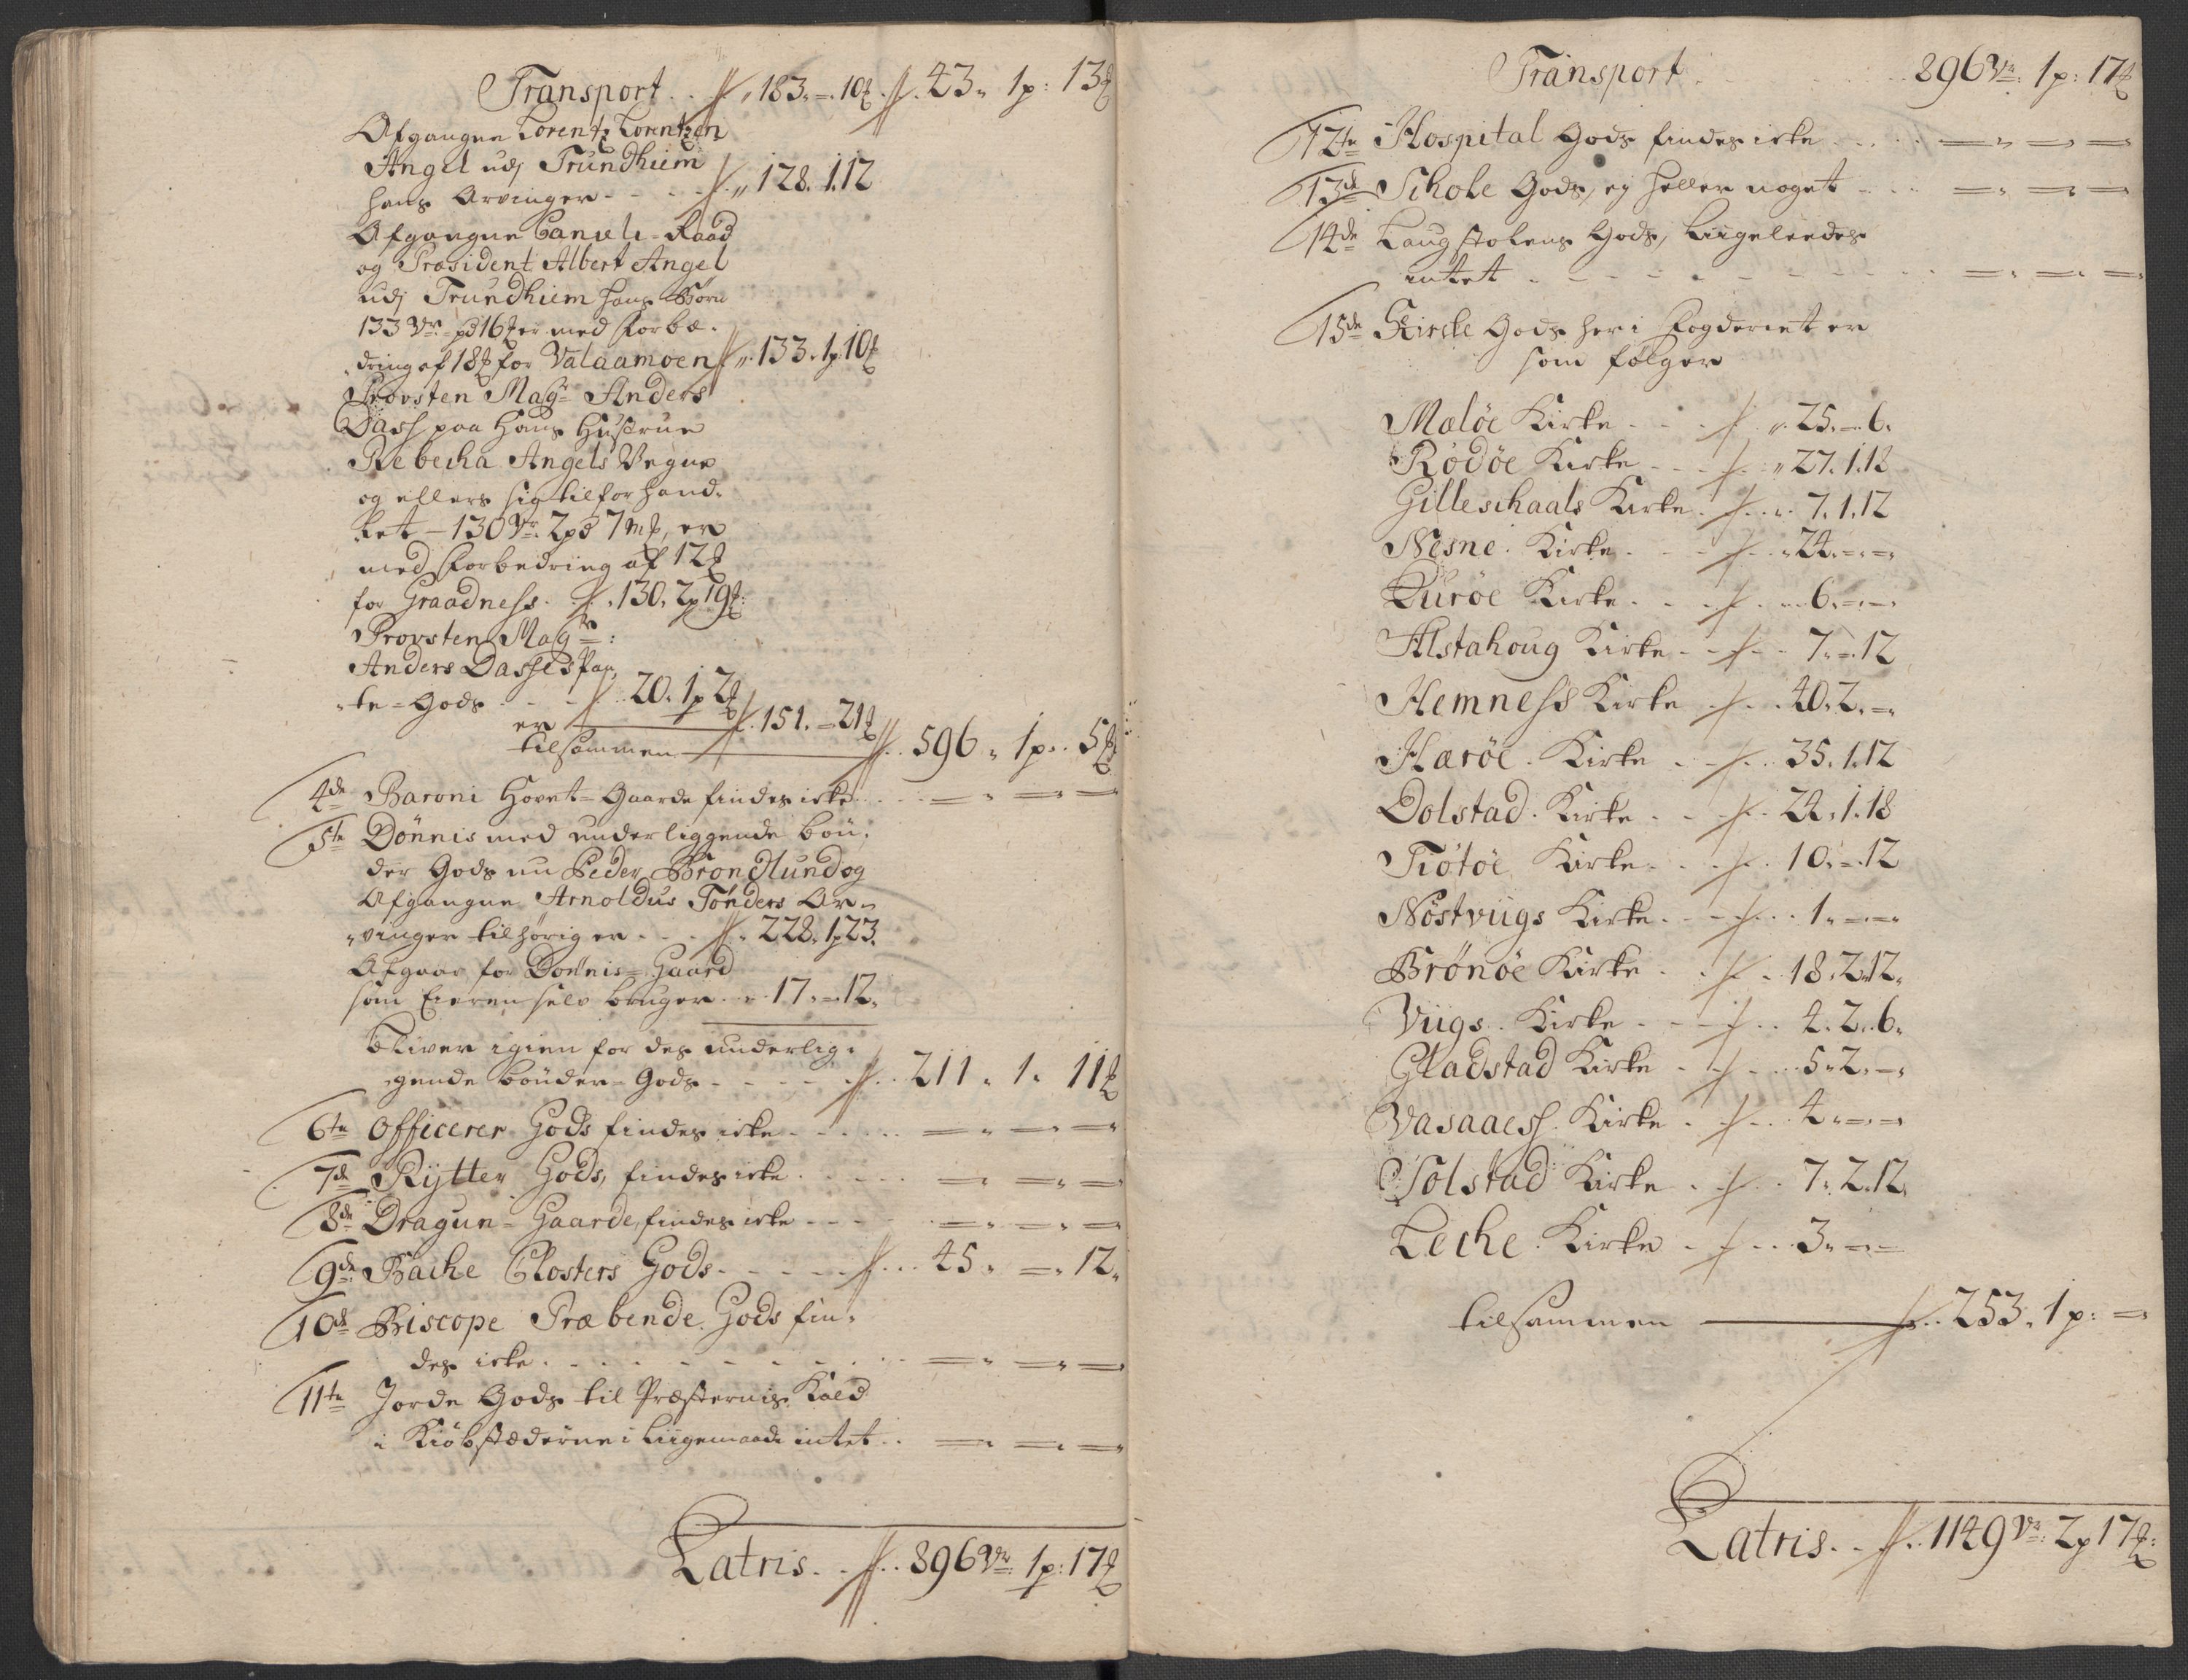 Transport . . 183. = .10 ℔ . 43. 1 p: 13 ℔
Afgangne Lorentz Lorentzen
Angel udj Trundhiem
hans Arvinger - - - 128. 1. 12
Afgangne Canceli-Raad
og Præsident Albert Angel
udj Trundhiem hans Børn
133 Vr. pd 16 ℔ er med forbe-
dring af 18 ℔ for Valaamoen 133. 1 p 10 ℔
Provsten Magr. Anders
Dass paa Hans Hustrue
Rebecha Angels Vegne
og ellers sig tilforhand-
let - 130 Vr. 2 pd 7 m℔, er
med forbedring af 12 ℔
for Graadness . 130. 2 p 19 ℔:
Provsten Magr:
Anders Dasses Pan-
te-Gods . . - 20. 1 p 2 ℔
er 151. = 21 ℔
tilsammen 596. 1 p. 5 ℔
4de Baroni Hovet-Gaarde findes icke . . = . = =
5te Dönnis med underliggende bön-
der Gods nu Peder Brondlund og
Afgangne Arnoldus Tønders Ar-
vinger tilhørig er - - - 228. 1 p 23.
Afgaar for Dönnis-Gaard
som Eieren selv bruger . . 17. = 12.
bliver igien for des underlig-
gende bönder-Gods - - - - 211. 1. 11 ℔
6te Officerer Gods findes icke - . . . = . = =
7de Rÿtter Gods, findes icke . . . = . = =
8de Dragun-Gaarde, findes icke - - - = . = =
9de Bache Closters Gods - - - - 45. =. 12.
10de Biscops Præbende Gods fin-
des icke . - - - - - = . = =
11te Jorde Gods til Præsternis Kald
i Kiöbstæderne i liigemaade intet . . = . = =
Latris. . . 896 Vr: 1 p: 17 ℔
Transport . . . . 896 Vr: 1 p: 17 ℔
12te Hospital Gods findes icke . . . = . = =
13de Schole Gods, ej heller noget - . . = . = =
14de Laugstolens Gods, liigeleedes
intet . - - - - - - = . = =
15de Kirke Gods her i fogderiet er
som følger
Meløe Kirke - - - 25. = . 6.
Rødøe Kirke - - - 27. 1. 18
Gilleschaals Kirke . . 7. 1. 12
Nesne Kirke . - - 24. = . =
Lurøe Kirke . . . 6. = . =
Alstahoug Kirke - - - 7. = . 12
Hemness Kirke . . 40. 2. =
Herøe . Kirke . - . 35. 1. 12
Dolstad . Kirke . - . 22. 1. 18
Tiøtøe Kirke - . . 10. = . 12
Nöstviigs Kirke - - . 1. = . =
Brönöe Kirke . . . 18. 2. 12.
Viigs . Kirke . - - . 4. 2. 6.
Gladstad Kirke - - . 5. 2. =
Vasaaess . Kirke . . . 4. = . =
Solstad Kirke . . . 7. 2. 12.
Leche . Kirke . . . 3. = . =
tilsammen . 253. 1 p: =
Latris. . . 1149 Vr: 2 p 17 ℔: